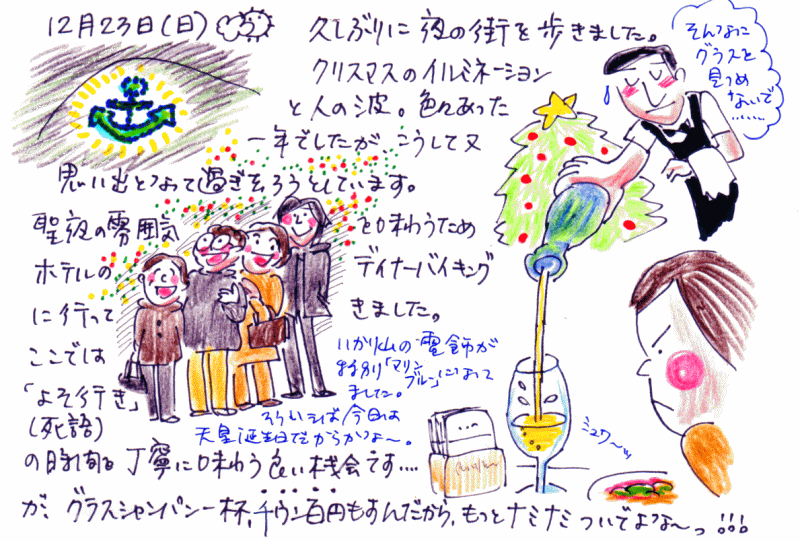 12月23日(日)
久しぶりに夜の街を歩きました。
クリスマスのイルミネーション
と人の波。色々あった
一年でしたが こうして又
思い出となって過ぎ去ろうとしています。
聖夜の雰囲気を味わうため
ホテルの ディナーバイキング
に行って きました。
ここでは
「よそ行き」
(死語)
の時間を丁寧に味わう良い機会です....
が、グラスシャンパン一杯、千ウン百円もすんだから、もっとナミナミついでよな〜っ!!!
いかり山の電飾が
特別「マリン
ブルー」になって
ました。
そういえば今日は
天皇誕生日だからかな〜。
そんなに
グラスを
見つめ
ないで
……
ミュワ〜ッ